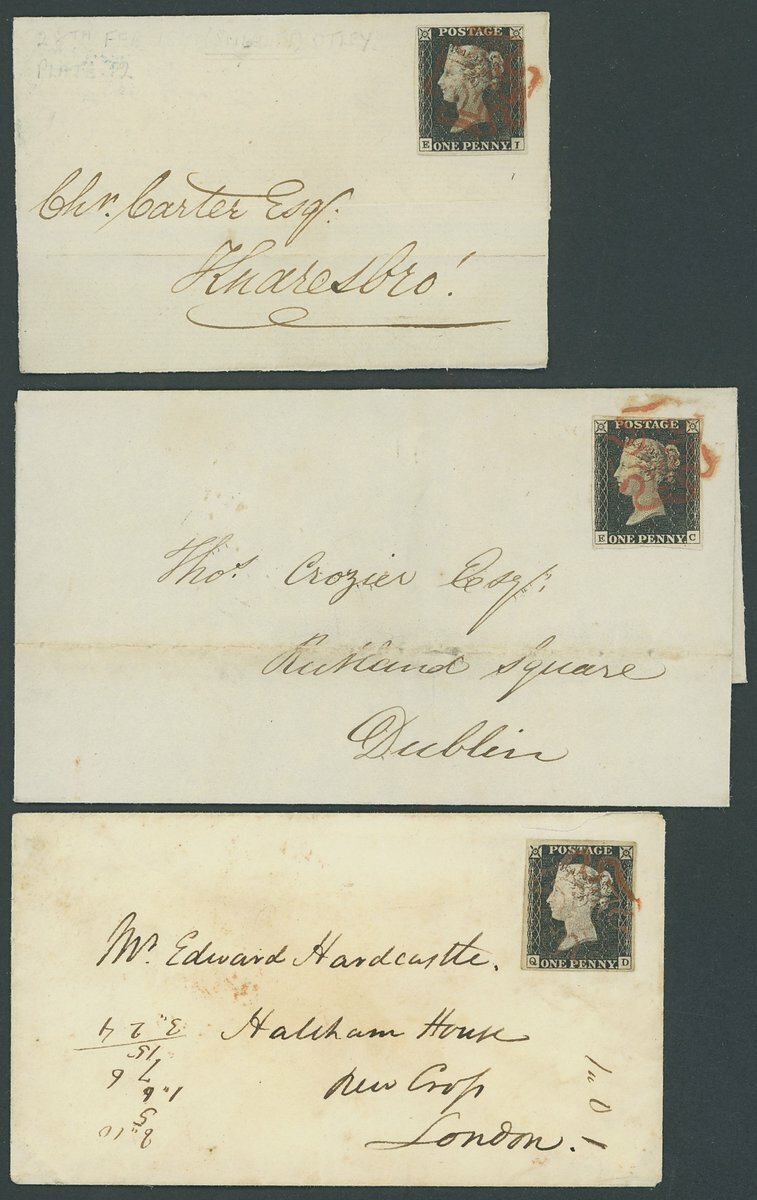 28TH FEB OTLEY
PLATE 2
POSTAGE
E ONE PENNY I
Chr. Carter Esqr.
Knaresbro'.
POSTAGE
E ONE PENNY C
Thos. Crozier Esqr.
Rutland Square
Dublin
POSTAGE
Q ONE PENNY D
Mr. Edward Hardcastle.
Halsham House
New Crofs
London.
2"10
5
1"6
7 6
15
3" 2 4